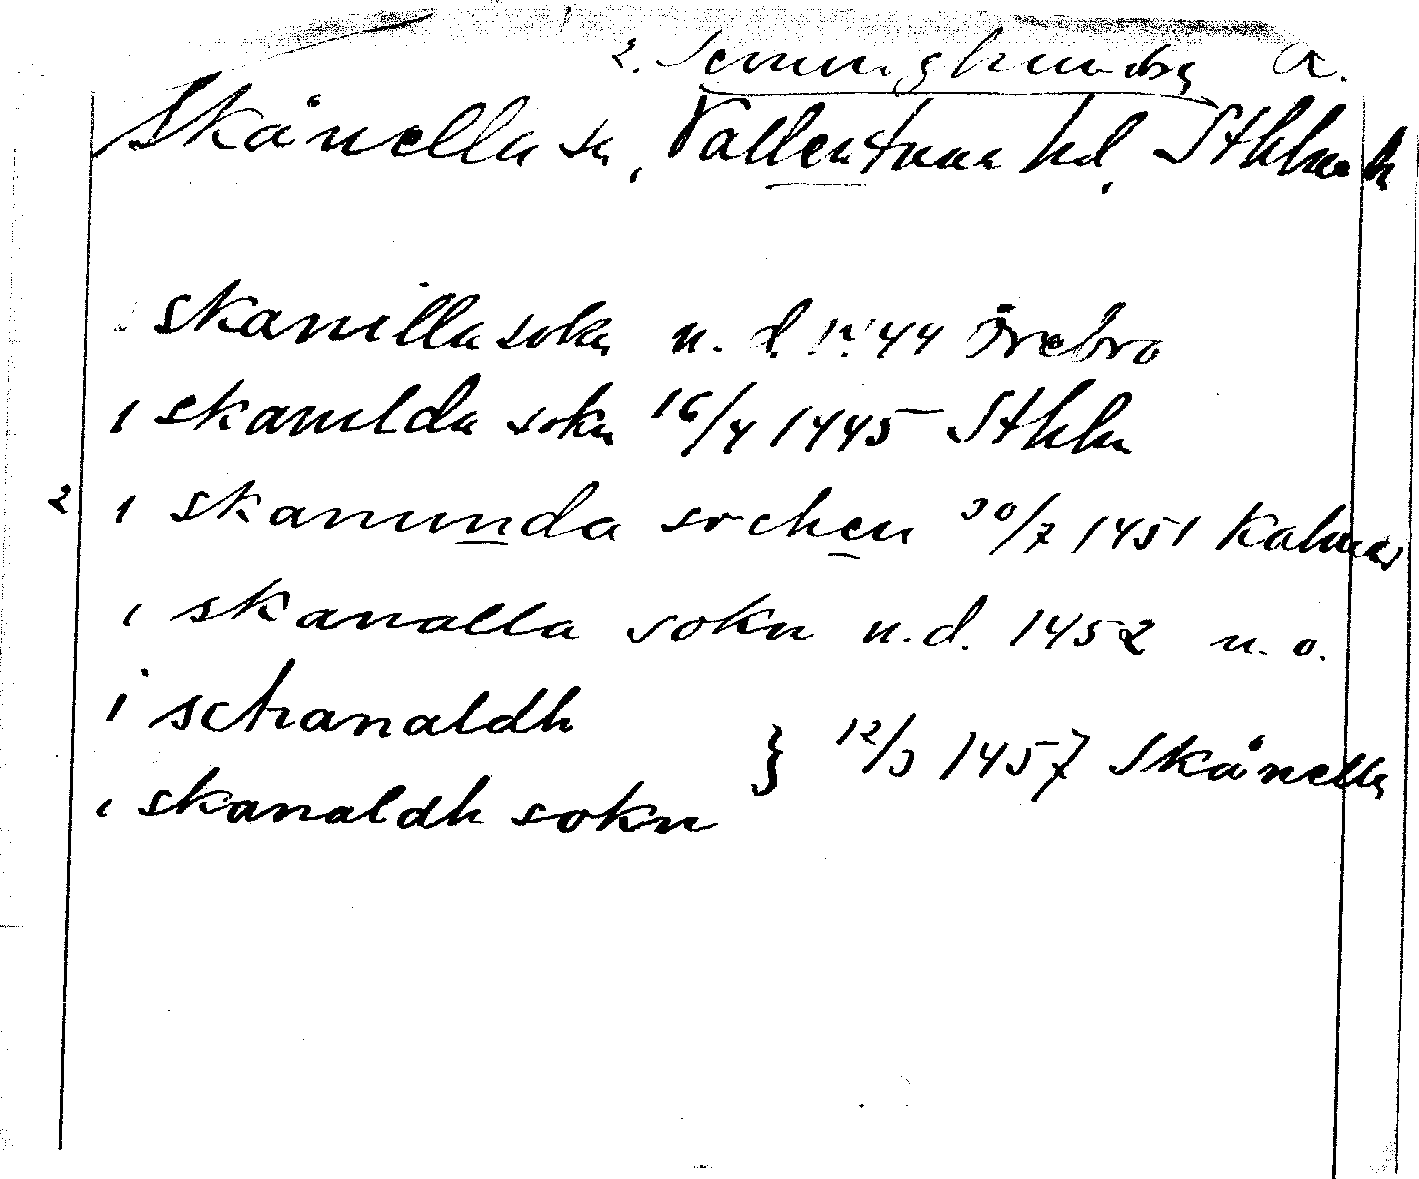 2. Seminghundra a.
Skånella sn, Vallentuna hd, Sthlms ln
skanilla sokn u. d. 1444 Örebro
i skanilda sokn 16/4 1445 Sthlm
2 i skanunda sochen 30/7 1451 Kalmar
i skanalla sokn u.d. 1452 u. o.
i schanaldh
} 12/3 1457 Skånella
i skanaldh sokn